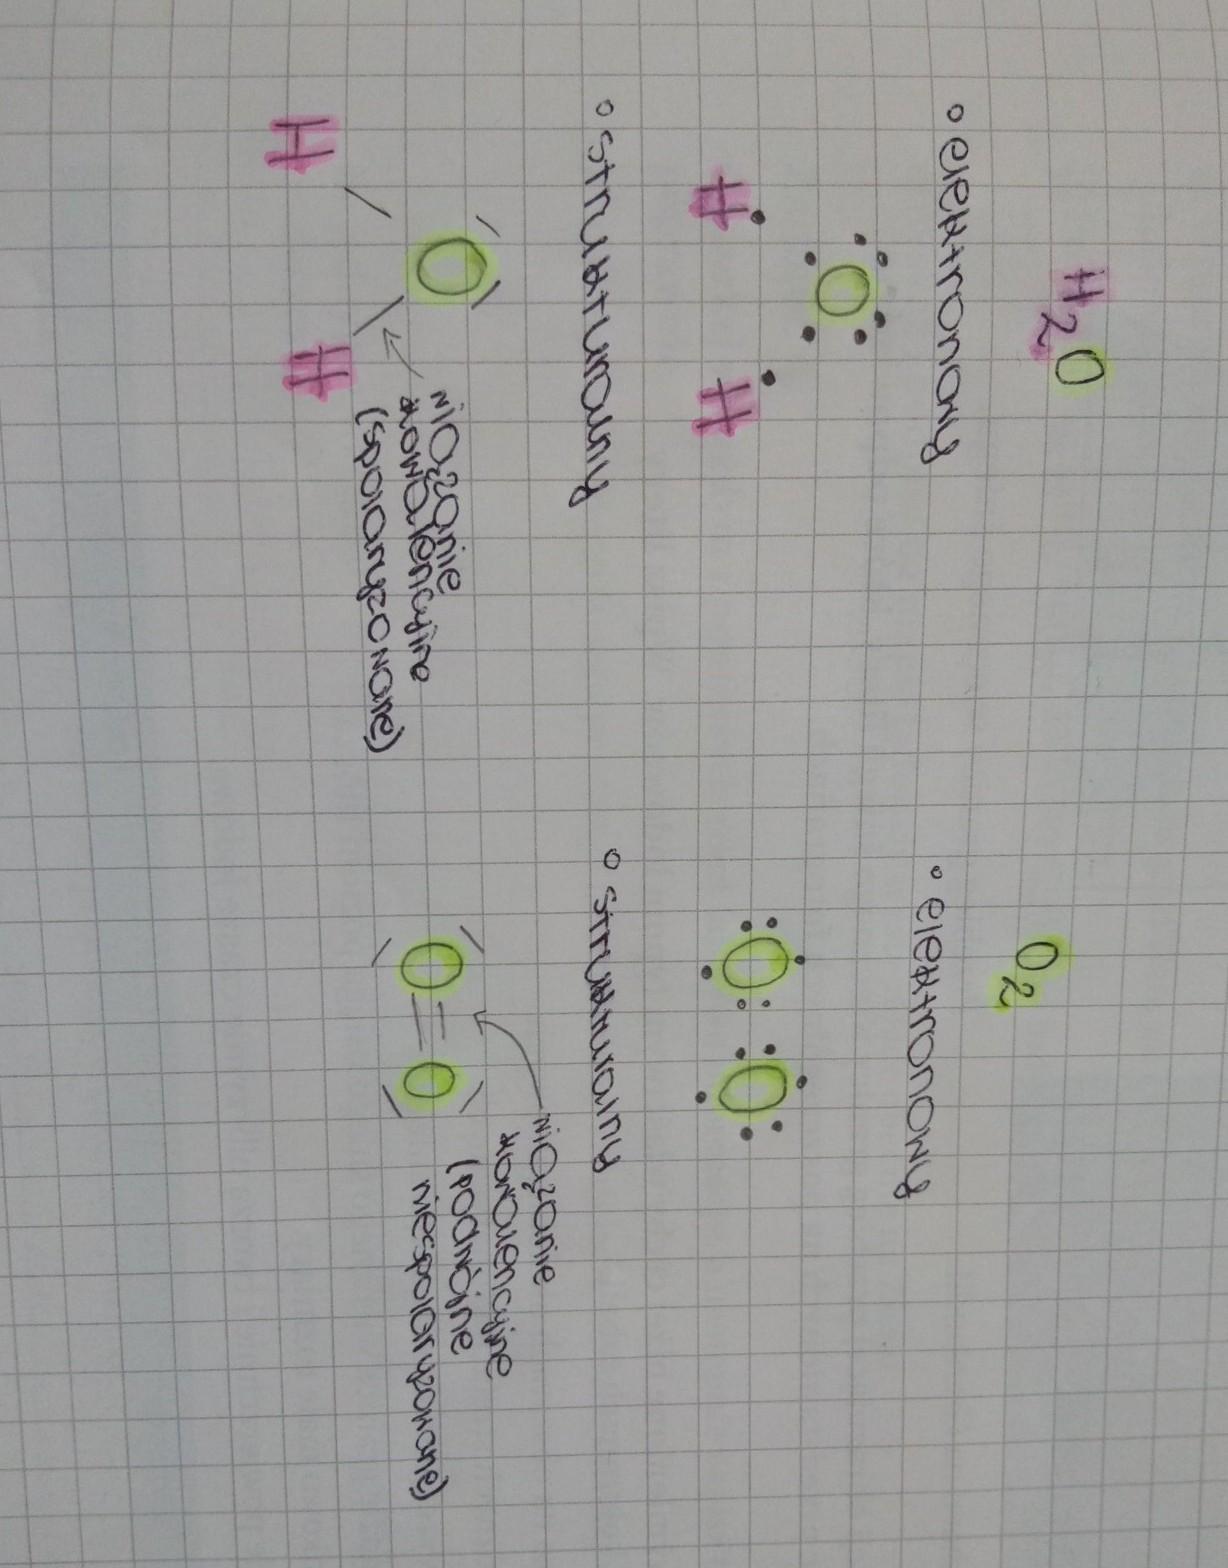 H₂O
• elektronowy
H
O
H
• strukturalny
O
H
H
wiązanie
kowalencyjne
(spolaryzowane)
O₂
• elektronowy
O O
• strukturalny
O = O
wiązanie
kowalencyjne
(podwójne
niespolaryzowane)